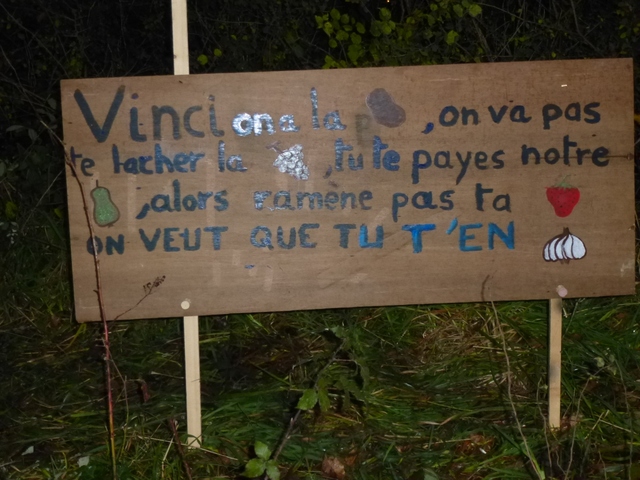 Vinci on a la p , on va pas
te lacher la , tu te payes notre
, alors ramène pas ta
ON VEUT QUE TU T'EN